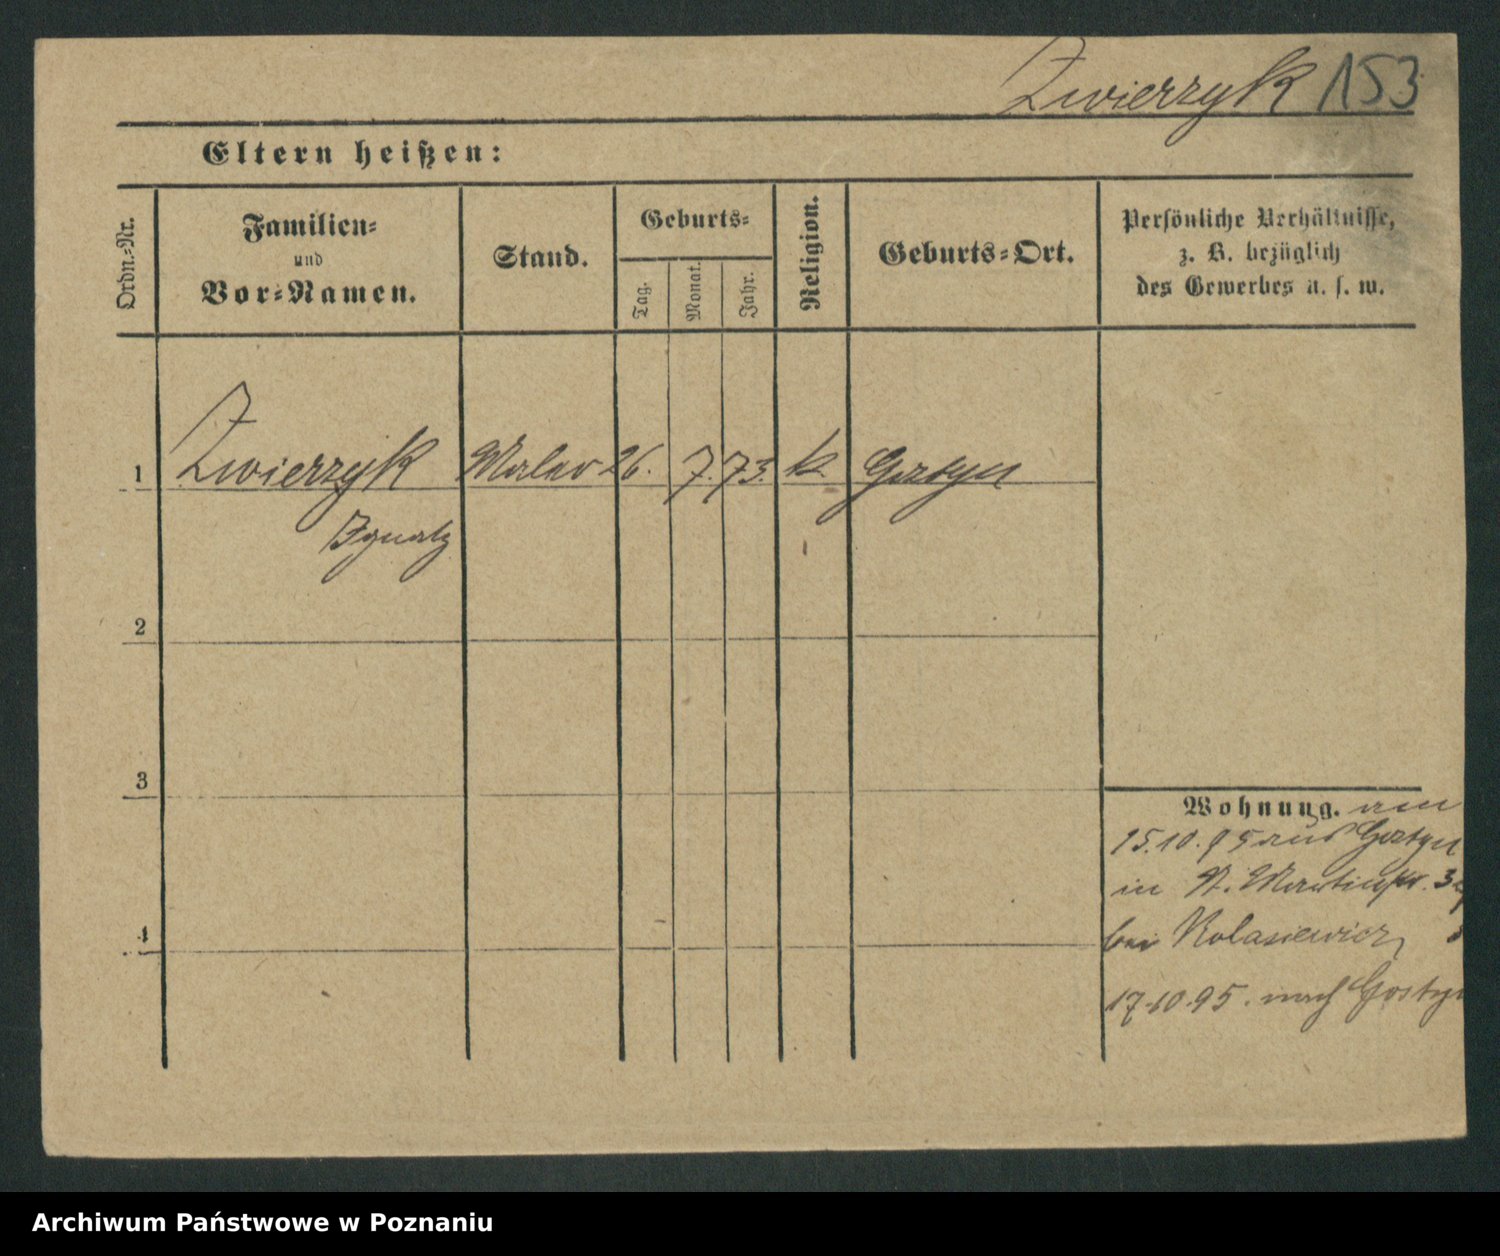 Zwierzyk 153
Eltern heißen:
Ordn.-Nr.
Familien-
und
Vor-Namen.
Stand.
Geburts-
Tag.
Monat.
Jahr.
Religion.
Geburts-Ort.
Persönliche Verhältnisse,
z. B. bezüglich
des Gewerbes u. s. w.
1 Zwierzyk Maler 26. 7. 73. k Gostyn
Ignatz
2
3
4
Wohnung. am
15.10.95 aus Gostyn
in St. Martinstr.
bei Kolasiewicz
17.10.95. nach Gostyn
Archiwum Państwowe w Poznaniu